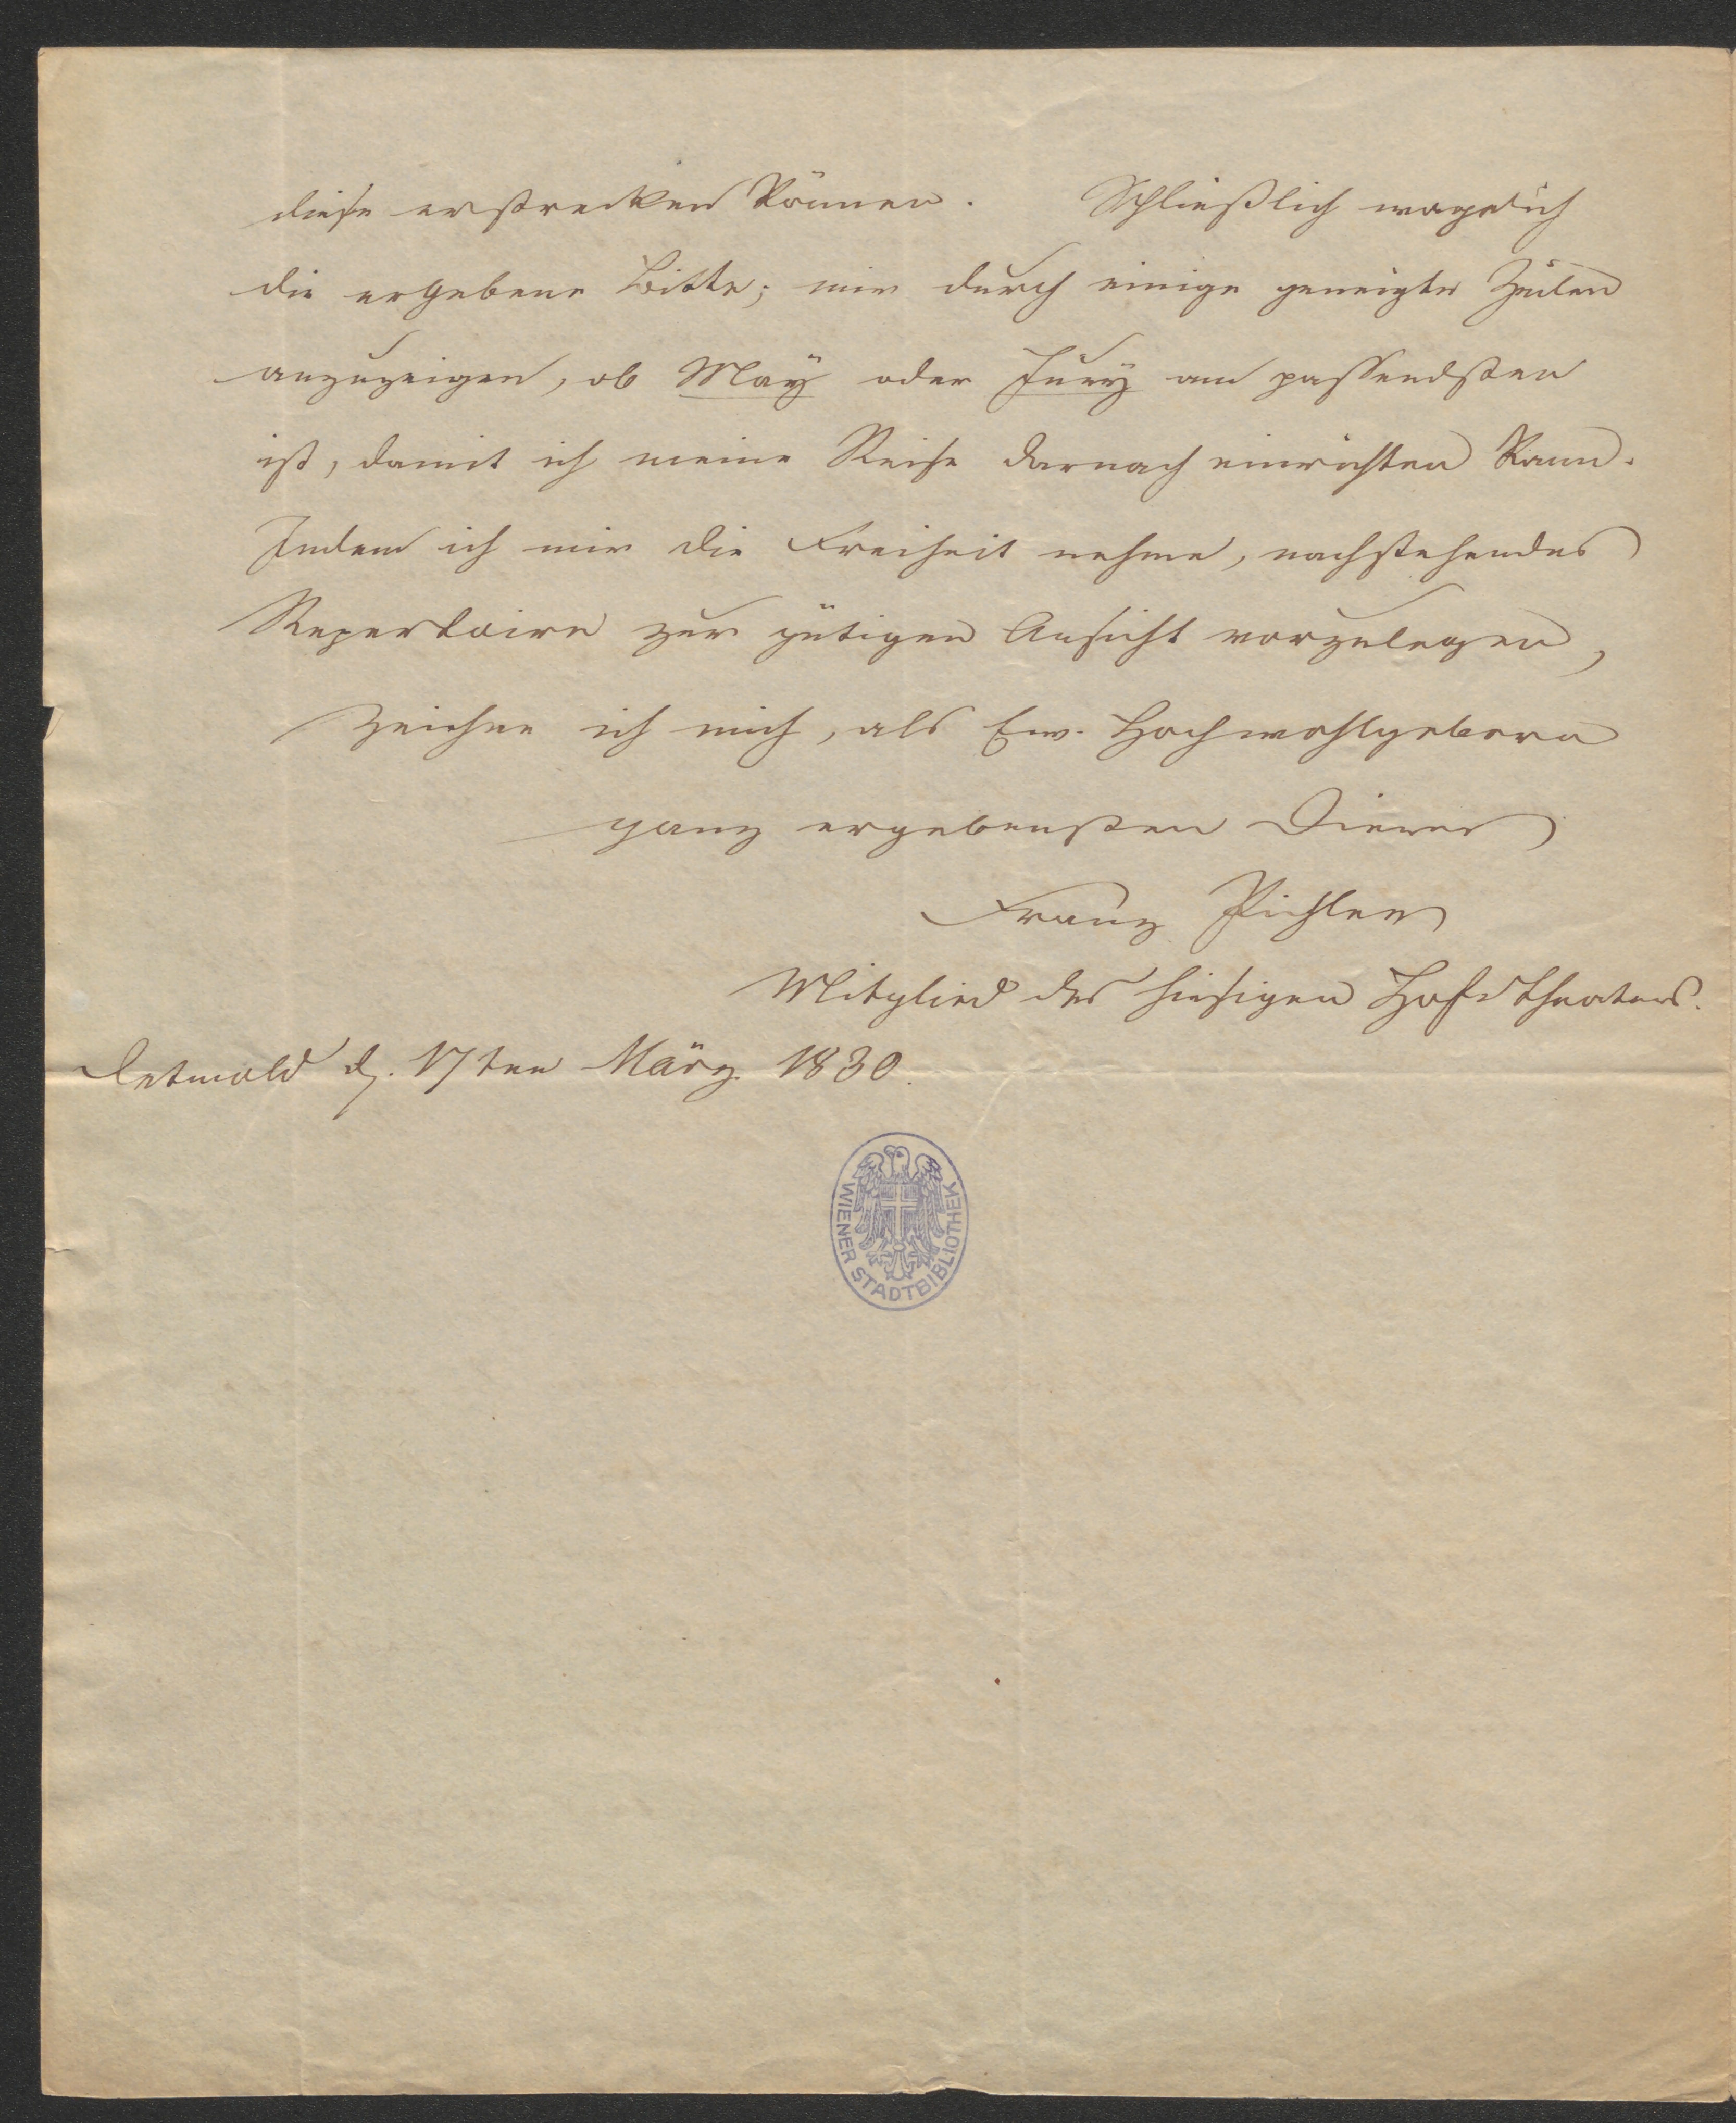 diese erstrecken können. Schließlich wage ich
die ergebene Bitte; mir durch einige geneigte Zeilen
anzuzeigen, ob May oder Juny am passendsten
ist, damit ich meine Reise darnach einrichten kann.
Indem ich mir die Freiheit nehme, nachstehendes
Repertoire zur gütigen Ansicht vorzulegen,
zeichne ich mich, als Ew. Hochwohlgeborn
ganz ergebensten Diener
Franz Pichler
Mitglied des hiesigen Hof-theaters.
Detmold d. 17ten März 1830.
WIENER STADTBIBLIOTHEK